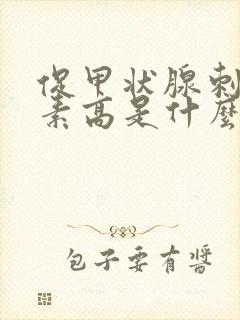 促甲状腺刺
素高是什麽
包子要有醬